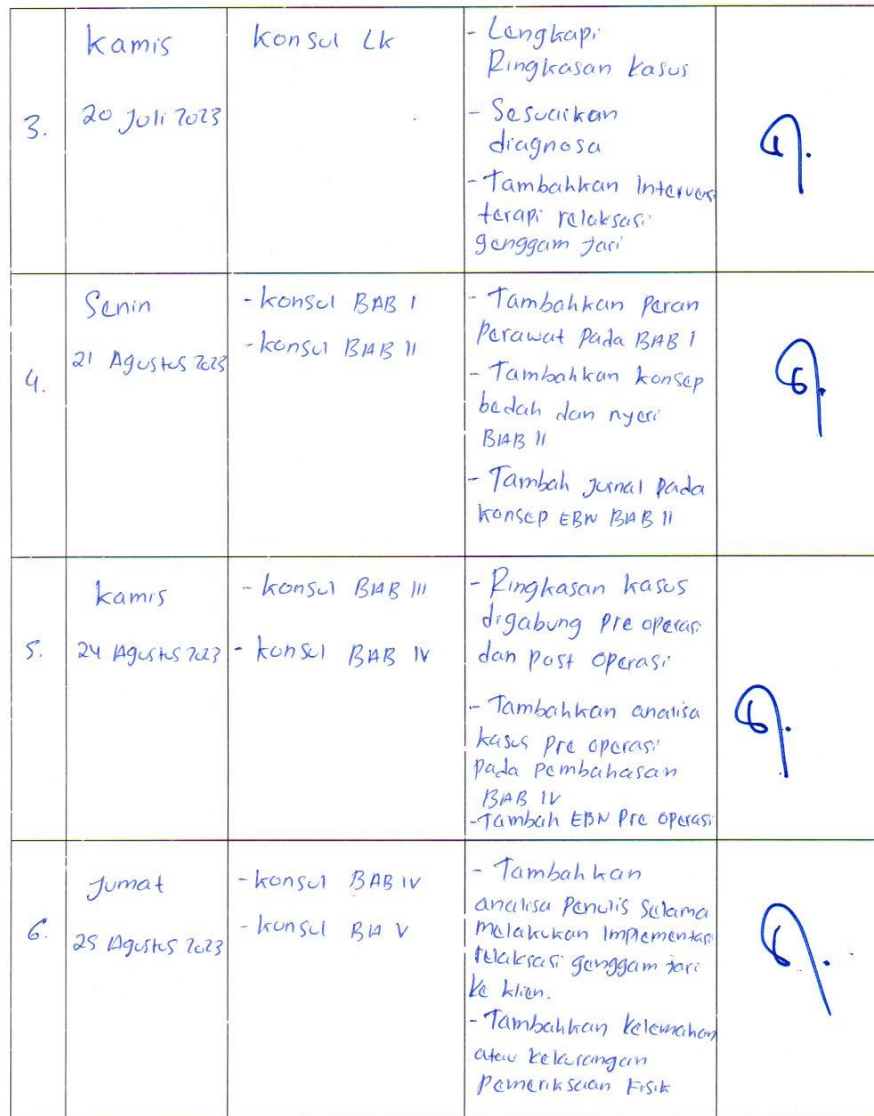 3.
Kamis
20 Juli 2023
Konsul LK
- Lengkapi
Ringkasan kasus
- Sesuaikan
diagnosa
- Tambahkan Intervensi
terapi relaksasi
genggam jari
4.
Senin
21 Agustus 2023
- Konsul BAB I
- Konsul BAB II
- Tambahkan Peran
Perawat Pada BAB I
- Tambahkan konsep
bedah dan nyeri
BAB II
- Tambah Jurnal pada
Konsep EBN BAB II
5.
Kamis
24 Agustus 2023
- Konsul BAB III
- Konsul BAB IV
- Ringkasan kasus
digabung Pre operasi
dan Post operasi
- Tambahkan analisa
kasus Pre operasi
pada Pembahasan
BAB IV
- Tambah EBN Pre operasi
6.
Jumat
25 Agustus 2023
- Konsul BAB IV
- Konsul BA V
- Tambahkan
analisa Penulis Selama
melakukan Implementasi
relaksasi genggam jari
ke klien.
- Tambahkan kelemahan
atau kekurangan
Pemeriksaan Fisik